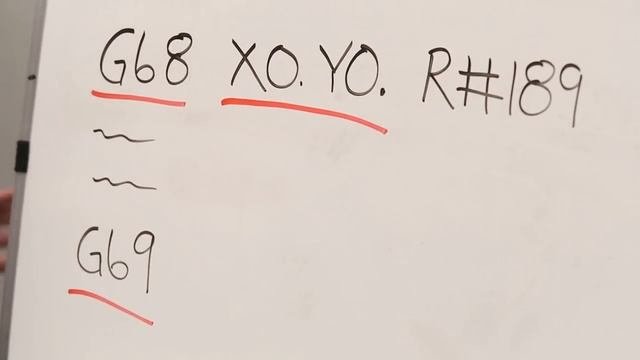 G68 X0. Y0. R#189
G69